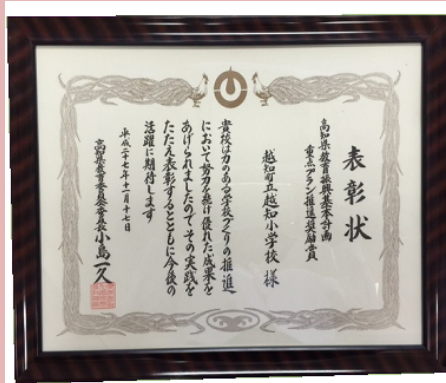 表彰状
高知県教育振興基本計画
重点プラン推進奨励賞
越知町立越知小学校 様
貴校は力のある学校づくりの推進
において努力を続け優れた成果を
あげられましたのでその実践を
たたえ表彰するとともに今後の
活躍に期待します
平成二十七年十一月十七日
高知県教育委員会委員長 小島一久